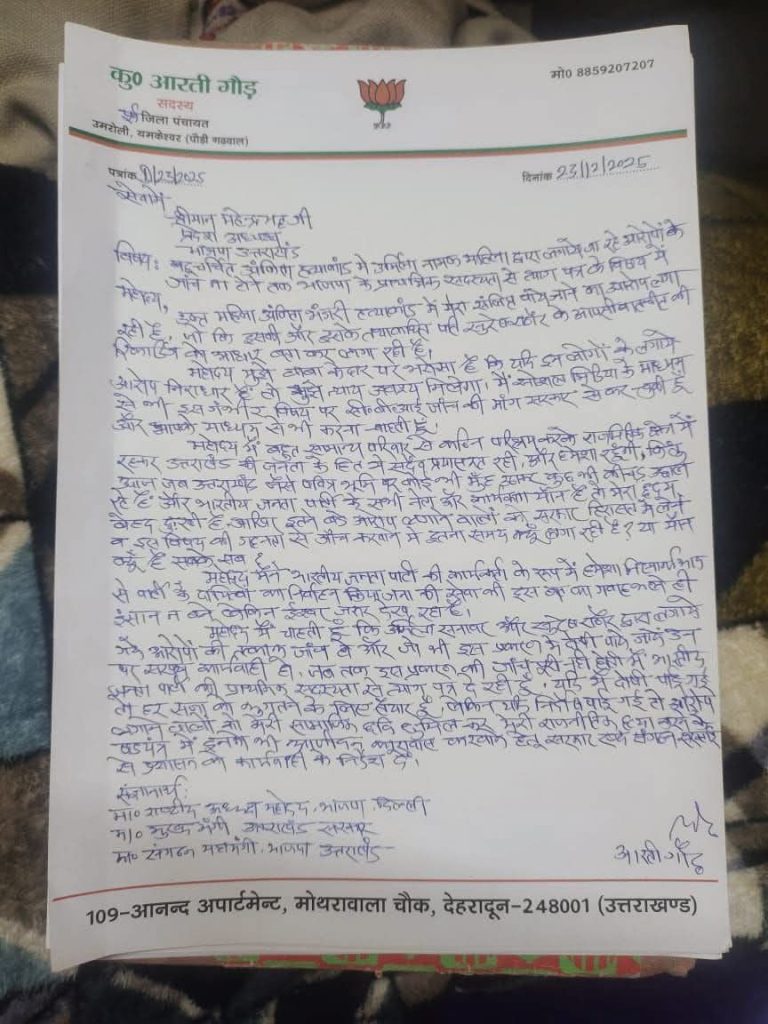 कु0 आरती गौड़
सदस्य
पूर्व जिला पंचायत
उमरोली, यमकेश्वर (पौड़ी गढ़वाल)
मो0 8859207207
पत्रांक 0/23/2025
दिनांक 23/12/2025
सेवामें
श्रीमान महेन्द्र भट्ट जी
प्रदेश अध्यक्ष
भाजपा उत्तराखंड
विषय: बहुचर्चित अंकिता हत्याकांड में उर्मिला नामक महिला द्वारा लगाये जा रहे आरोपों के
जाँच ना होने तक भाजपा के प्राथमिक सदस्यता से त्याग पत्र के विषय में
महोदय, उक्त महिला अंकिता भंडारी हत्याकांड में मेरा अंकित होने का आरोप लगा
रही है, जो कि इसकी और इसके तथाकथित पति सुरेश राठौर के आपसी बातचीत की
रिकार्डिंग को आधार बना कर लगा रही है।
महोदय मुझे बाबा केदार पर भरोसा है कि यदि इन लोगों के लगाये
आरोप निराधार हैं तो मुझे न्याय अवश्य मिलेगा। मैं सोशल मिडिया के माध्यम
से भी इस गंभीर विषय पर सी०बी०आई जाँच की मांग सरकार से कर चुकी हूँ
और आपके माध्यम से भी करना चाहती हूँ
महोदय मैं बहुत सामान्य परिवार से कठिन परिश्रम करके राजनितिक क्षेत्र में
रहकर उत्तराखंड की जनता के हित में सदैव प्रयासरत रही, और हमेशा रहूंगी, किंतु
आज जब उत्तराखंड जैसी पवित्र भूमि पर कोई भी मुँह उठाकर कुछ भी कीचड़ उछाल
रहे हैं और भारतीय जनता पार्टी के सभी नेता और कार्यकर्ता मौन हैं तो मेरा हृदय
बेहद दुःखी है, आखिर इतने बड़े आरोप लगाने वालों को सरकार हिरासत में लेने
व इस विषय की गहनता से जाँच करवाने में इतना समय क्यूँ लगा रही है? या मौन
क्यूँ है सबके सब?
महोदय मैंने भारतीय जनता पार्टी की कार्यकर्ता के रूप में हमेशा निस्वार्थ भाव
से पार्टी के दायित्वों का निर्वाहन किया जनता की सेवा की इस बात का गवाह भले ही
इंसान न बने लेकिन ईश्वर जरूर देख रहा है।
महोदय मैं चाहती हूँ कि उर्मिला सनावर और सुरेश राठौर द्वारा लगाये
गये आरोपों की तत्काल जाँच हो और जो भी इस प्रकरण में दोषी पाये जायें उन
पर सख्त कार्यवाही हो, जब तक इस प्रकरण की जाँच पूरी नहीं होती मैं भारतीय
जनता पार्टी की प्राथमिक सदस्यता से त्याग पत्र दे रही हूँ, यदि मैं दोषी पाई गई
तो हर सजा को भुगतने के लिए तैयार हूँ, लेकिन यदि निर्दोष पाई गई तो आरोप
लगाने वालों को मेरी सामाजिक छवि धूमिल कर मेरी राजनीतिक हत्या करने के
षडयंत्र में इनको भी कारवाने हेतू सरकार
से प्रशासन को कार्यवाही के निर्देश दें।
संज्ञानार्थ:
मा० राष्ट्रीय अध्यक्ष महोदय, भाजपा, दिल्ली
मा० मुख्य मंत्री उत्तराखंड सरकार
मा० संगठन महामंत्री, भाजपा उत्तराखंड
आरती गौड़
109-आनन्द अपार्टमेन्ट, मोथरावाला चौक, देहरादून-248001 (उत्तराखण्ड)